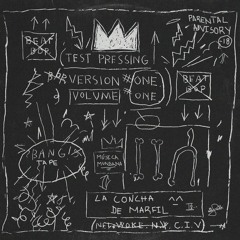 PARENTAL
ADVISORY
<18
BEAT
BOP
TEST PRESSING
VERSION ONE
VOLUME ONE
BEAT
BOP
BANG!
TAPE
MÚSICA
MUNDANA
LA CONCHA
DE MARFIL